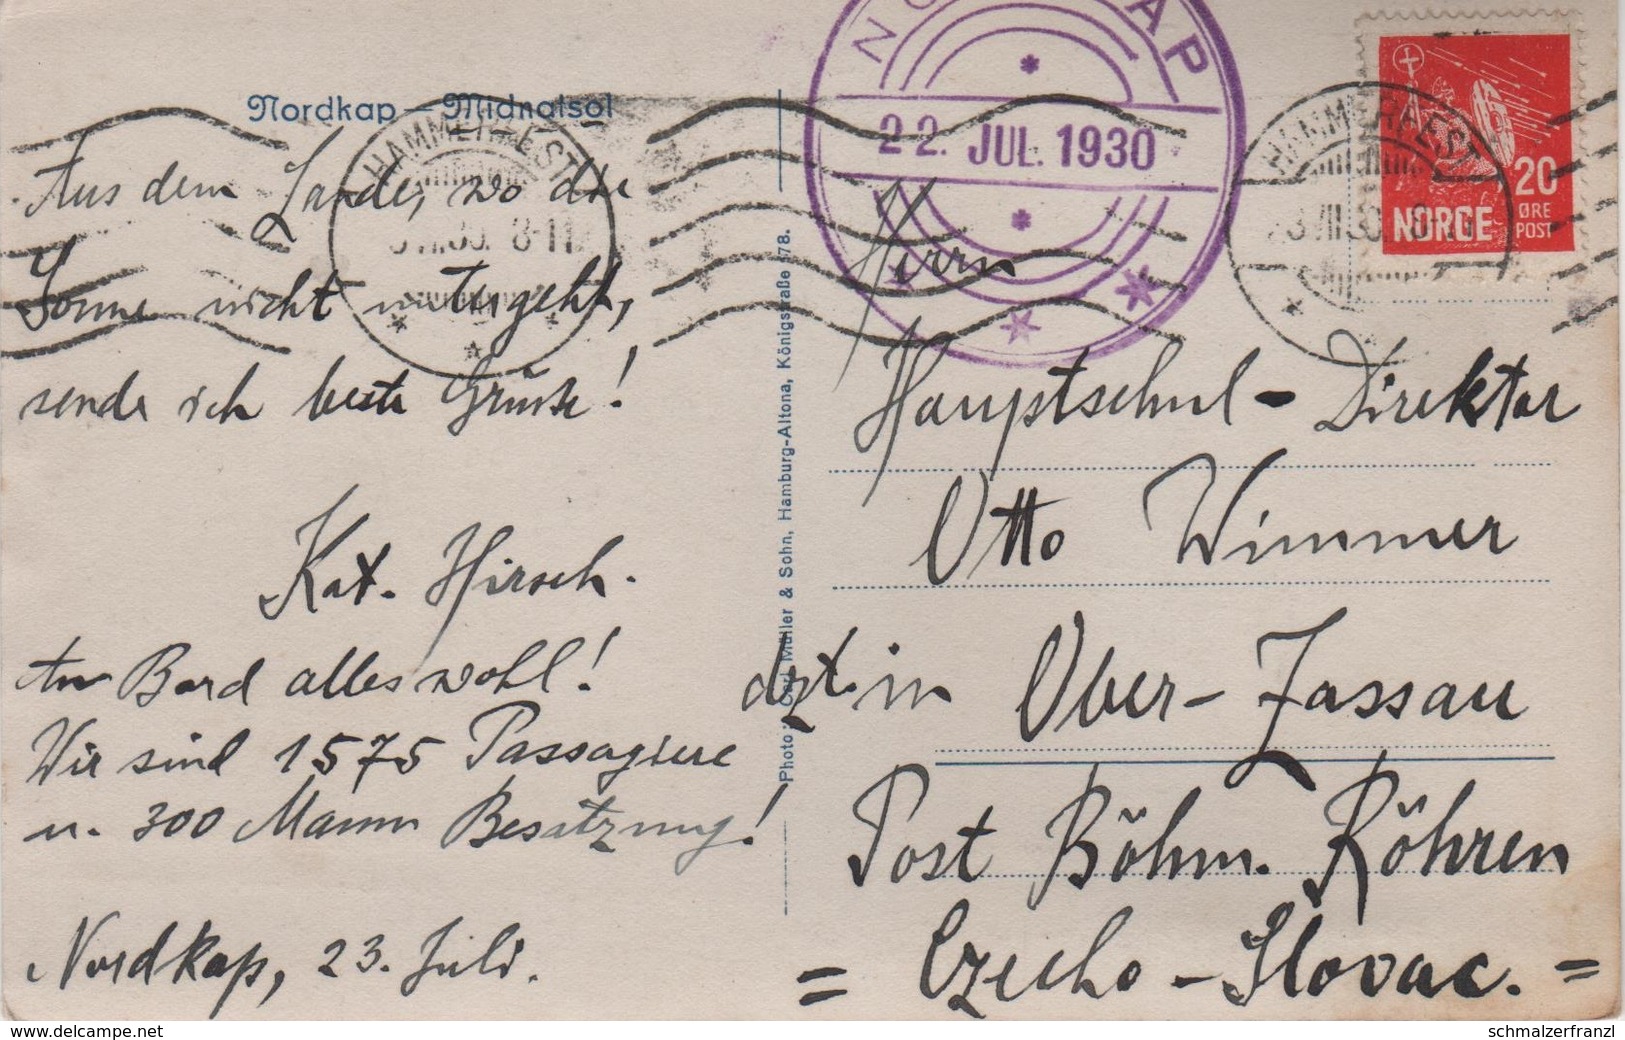 Nordkap — Midnatsol
Aus dem Lande, wo die
Sonne nicht untergeht,
sende ich beste Grüsse!
Kat. Hirsch.
An Bord alles wohl!
Wir sind 1575 Passagiere
u. 300 Mann Besatzung!
Nordkap, 23. Juli.
Photo: Carl Müller & Sohn, Hamburg-Altona, Königstraße 178.
22. JUL. 1930
HAMMERFEST
8-11
HAMMERFEST
20
ØRE
NORGE POST
Herrn
Hauptschul-Direktor
Otto Wimmer
dzt. in Ober-Zassau
Post Böhm. Röhren
= Czecho-Slovac. =
www.delcampe.net
schmalzerfranzl